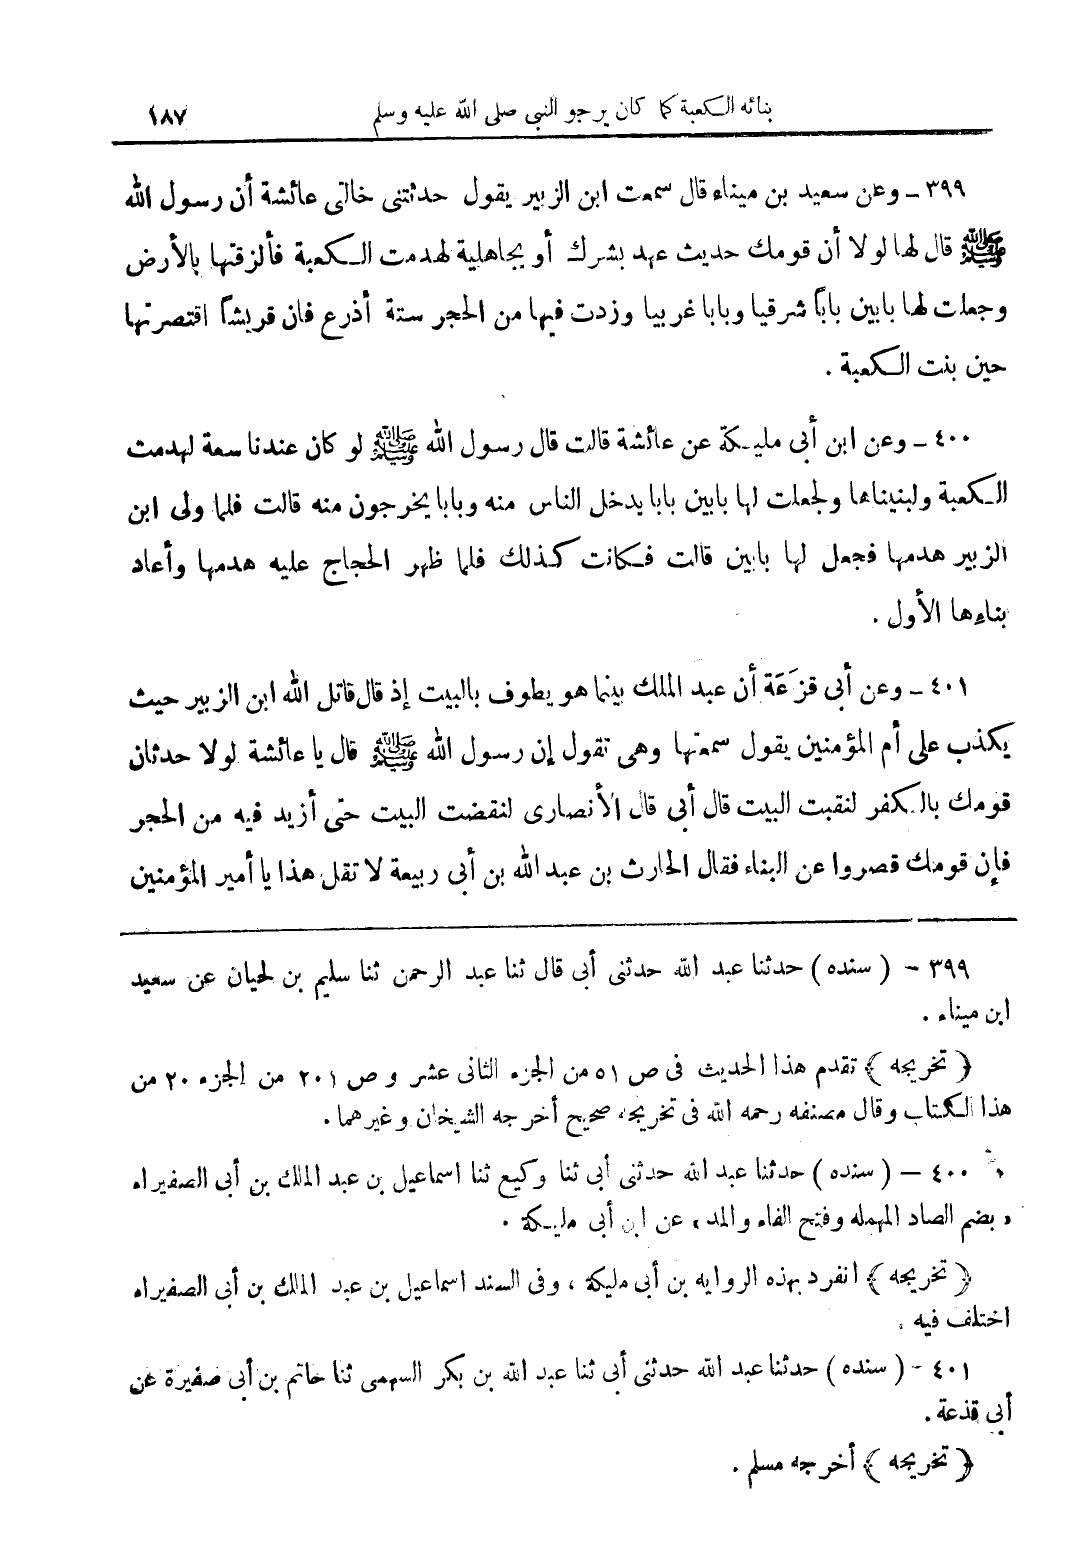 بنائه الكعبة كما كان يرجو النبي صلى الله عليه وسلم ١٨٧
٣٩٩ ـ وعن سعيد بن ميناء قال سمعت ابن الزبير يقول حدثتنى خالتى عائشة أن رسول الله
ﷺ قال لها لولا أن قومك حديث عهد بشرك أو بجاهلية لهدمت الكعبة فألزقتها بالأرض
وجعلت لها بابين باباً شرقيا وبابا غربيا وزدت فيها من الحجر ستة أذرع فان قريشاً اقتصرتها
حين بنت الكعبة .
٤٠٠ ـ وعن ابن أبى مليكة عن عائشة قالت قال رسول الله ﷺ لو كان عندنا سعة لهدمت
الكعبة ولبنيناها ولجعلت لها بابين بابا يدخل الناس منه وبابا يخرجون منه قالت فلما ولى ابن
الزبير هدمها فجعل لها بابين قالت فكانت كذلك فلما ظهر الحجاج عليه هدمها وأعاد
بناءها الأول .
٤٠١ ـ وعن أبى قزَعَة أن عبد الملك بينما هو يطوف بالبيت إذ قال قاتل الله ابن الزبير حيث
يكذب على أم المؤمنين يقول سمعتها وهى تقول إن رسول الله ﷺ قال يا عائشة لولا حدثان
قومك بالكفر لنقبت البيت قال أبي قال الأنصارى لنقضت البيت حتى أزيد فيه من الحجر
فإن قومك قصروا عن البناء فقال الحارث بن عبد الله بن أبى ربيعة لا تقل هذا يا أمير المؤمنين
٣٩٩ - ( سنده ) حدثنا عبد الله حدثنى أبى قال ثنا عبد الرحمن ثنا سليم بن لحيان عن سعيد
ابن ميناء .
﴿ تخريجه ﴾ تقدم هذا الحديث فى ص ٥١ من الجزء الثانى عشر و ص ٢٠١ من الجزء ٢٠ من
هذا الكتاب وقال مصنفه رحمه الله فى تخريجه صحيح أخرجه الشيخان وغيرهما .
٤٠٠ — ( سنده ) حدثنا عبد الله حدثنى أبي ثنا وكيع ثنا اسماعيل بن عبد الملك بن أبى الصفيراء
« بضم الصاد المهمله وفتح الفاء والمد » عن ابن أبى مليكة .
﴿ تخريجه ﴾ انفرد بهذه الروايه بن أبى مليكة ، وفى السند اسماعيل بن عبد الملك بن أبى الصفيراء
اختلف فيه .
٤٠١ - ( سنده ) حدثنا عبد الله حدثنى أبي ثنا عبد الله بن بكر السهمى ثنا حاتم بن أبى صفيرة عن
أبي قذعة .
﴿ تخريجه ﴾ أخرجه مسلم .